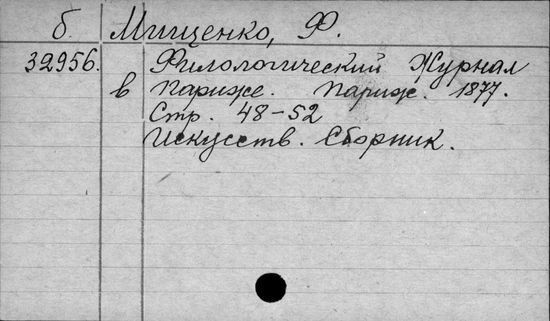 б. Мищенко, Ф.
32956. Филологический Журнал
в Париже. Париж. 1877.
Стр. 48-52
Искусств. Сборник.